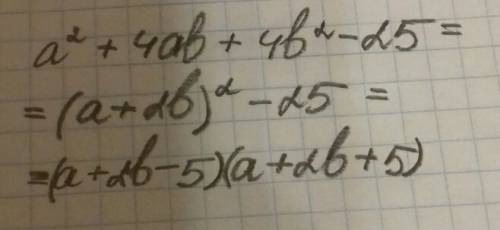 a² + 4ab + 4b² - 25 =
= (a + 2b)² - 25 =
= (a + 2b - 5)(a + 2b + 5)